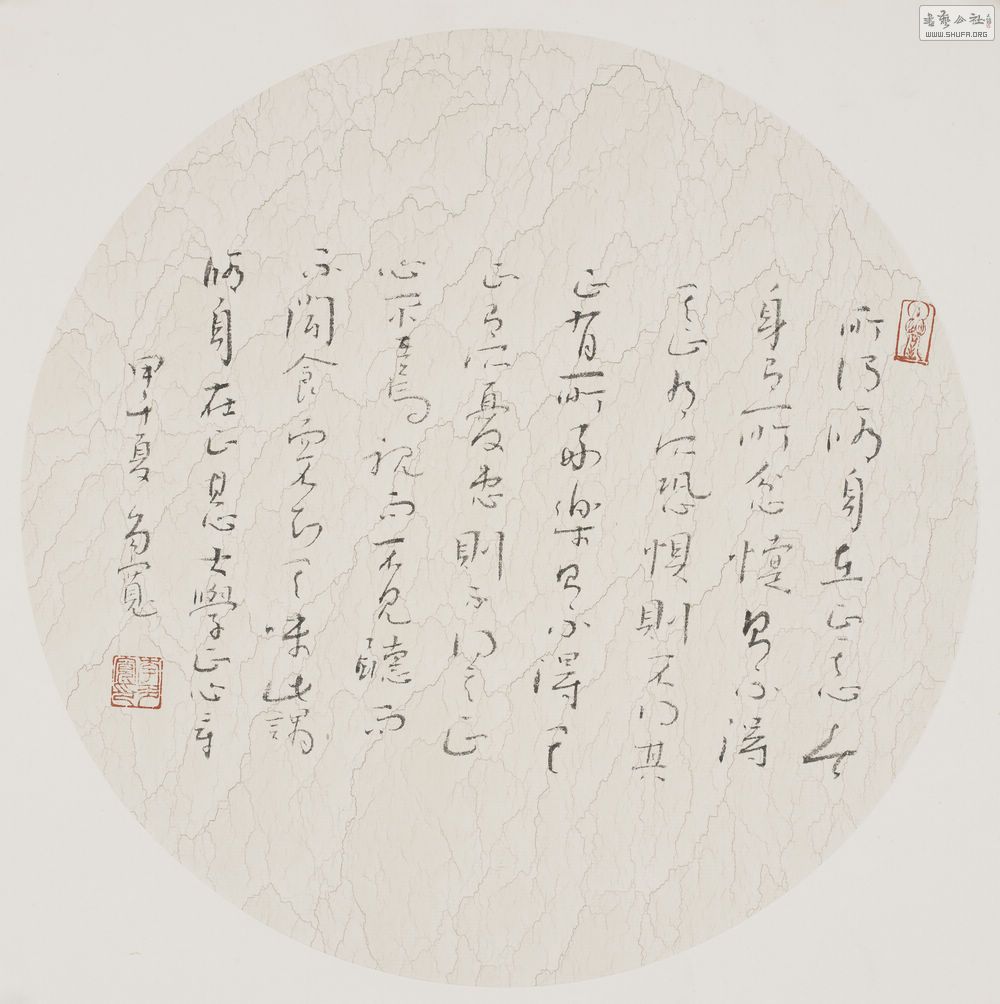 所謂脩身在正其心者
身有所忿懥則不得
其正有所恐懼則不得其
正有所好樂則不得其
正有所憂患則不得其正
心不在焉視而不見聽而
不聞食而不知其味此謂
脩身在正其心大學正心章
甲午夏 寬
書藝公社
WWW.SHUFA.ORG